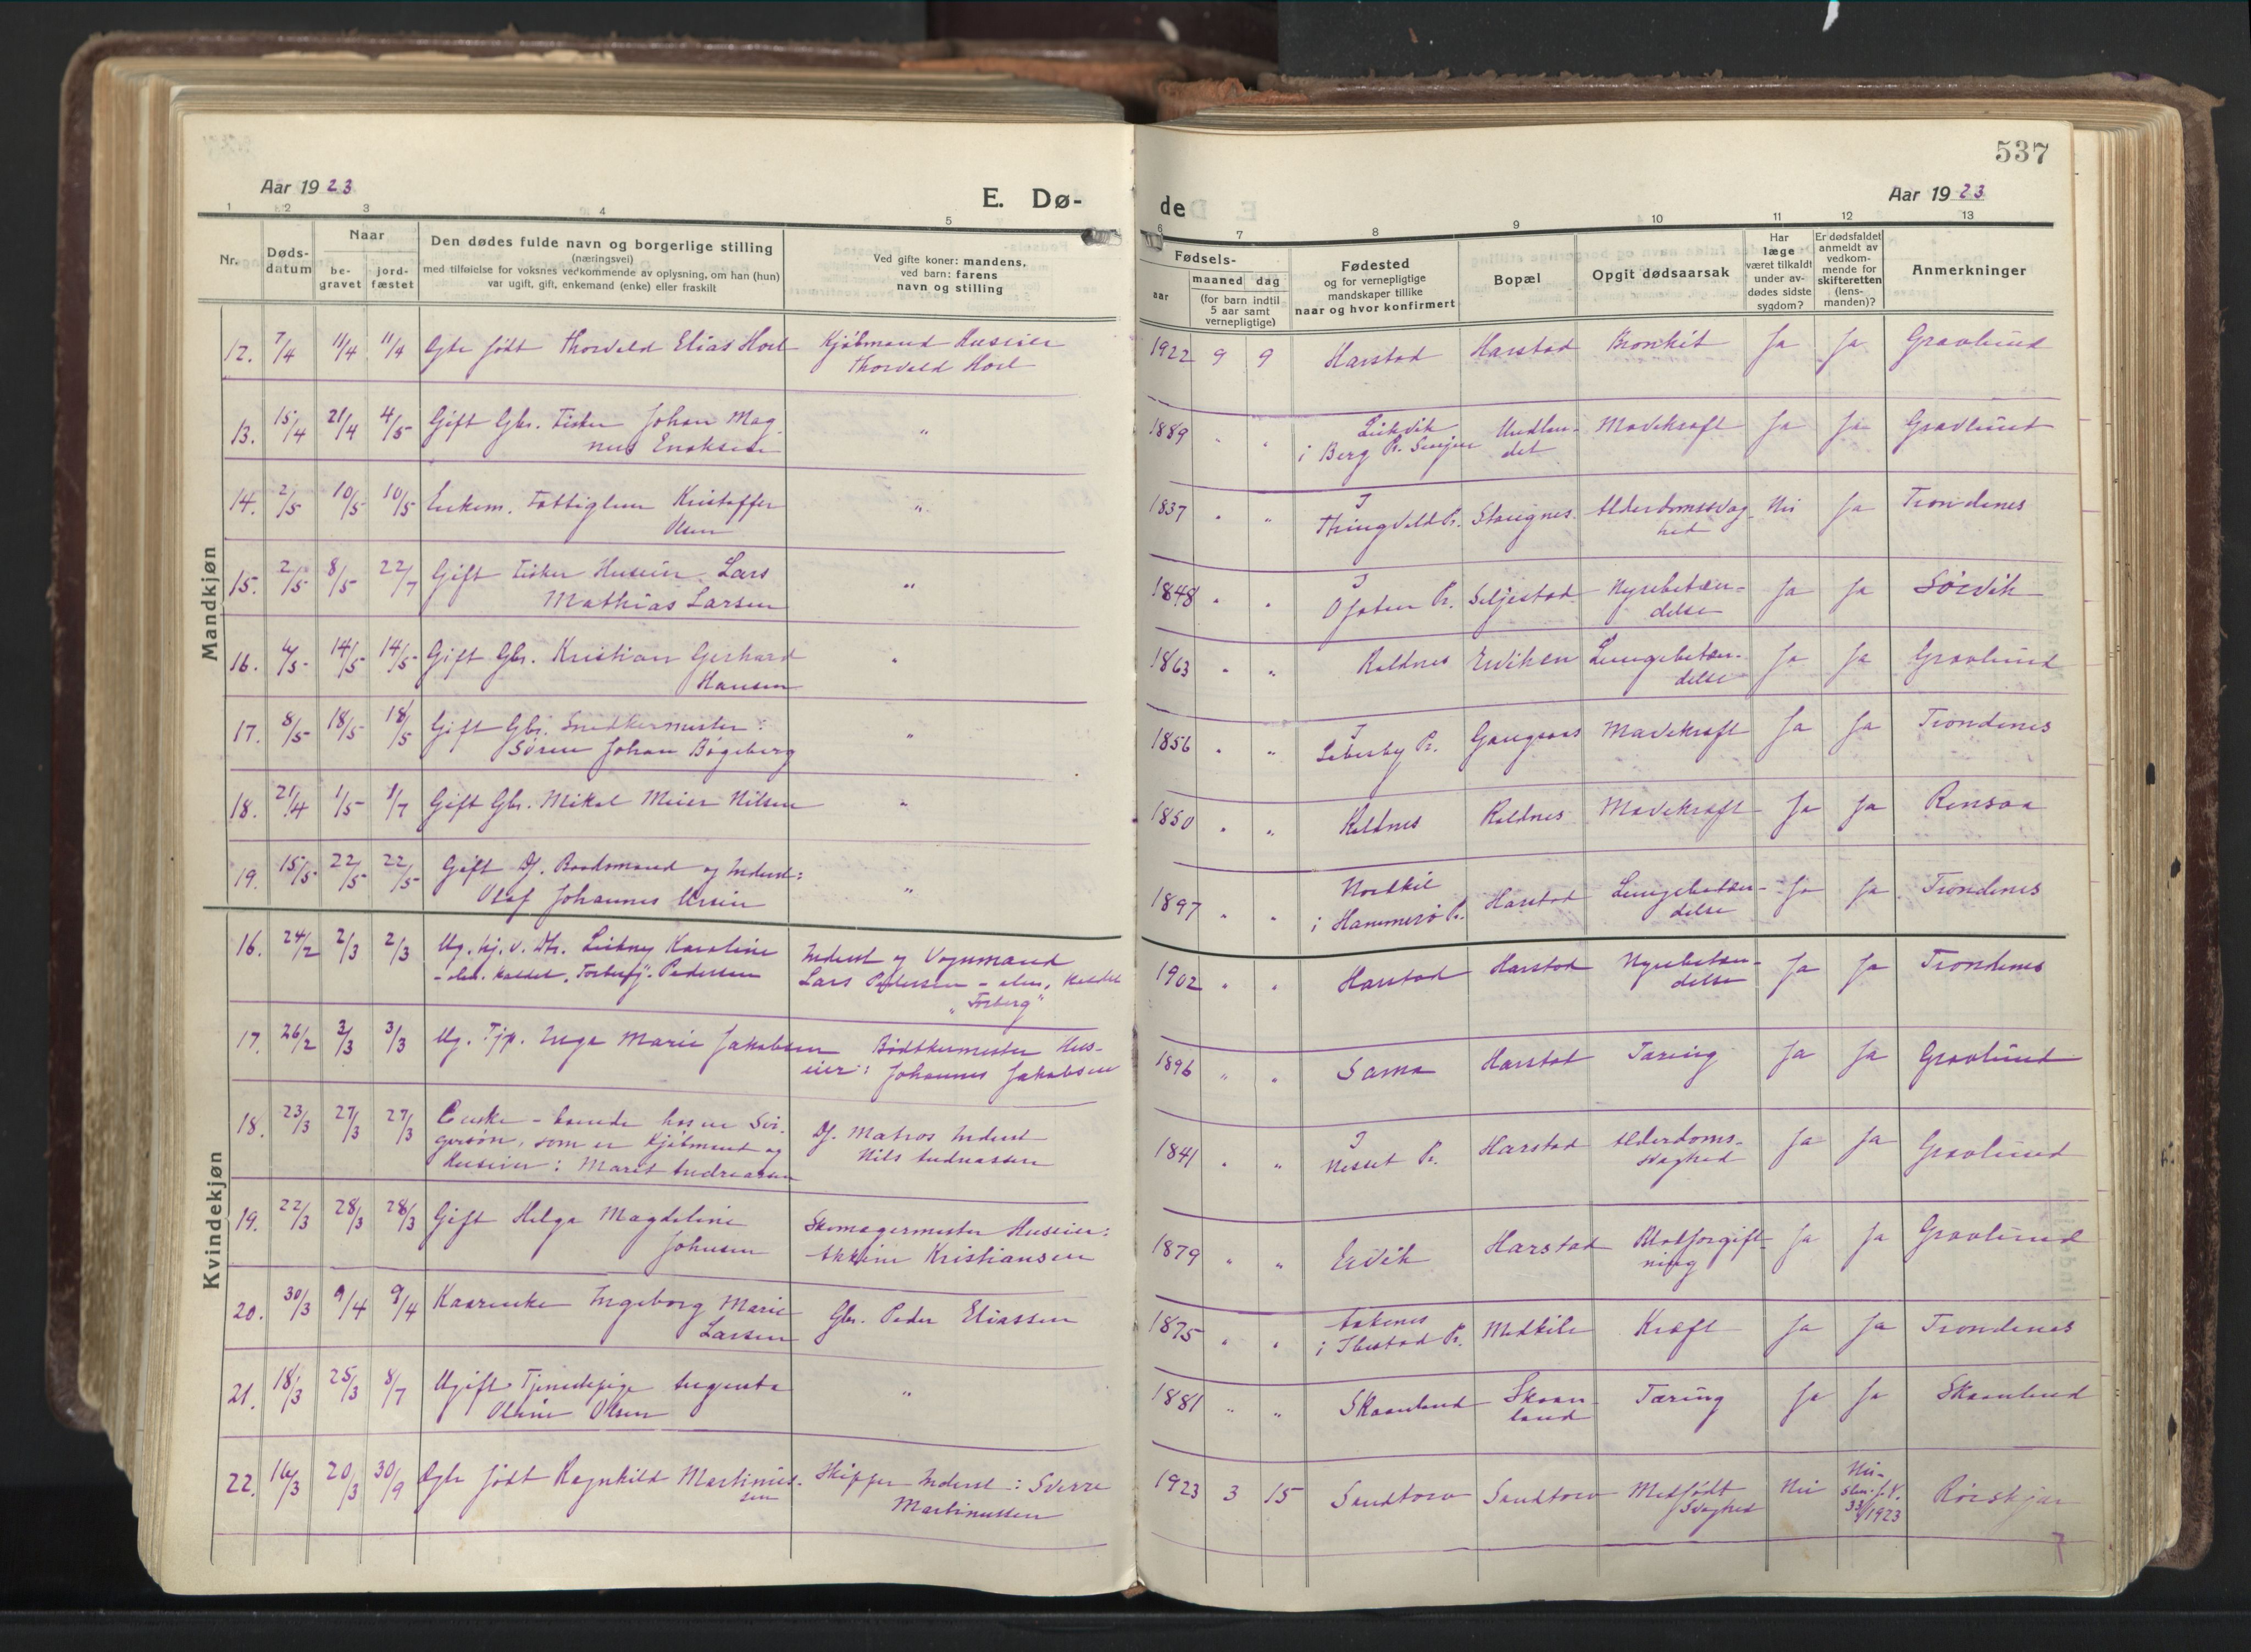 537
Aar 1923
E. Dø-
de
Aar 1923
1 2 3 4 5
6 7 8 9 10 11 12 13
Nr.
Døds-
datum
Naar
be-
gravet
jord-
fæstet
Den dødes fulde navn og borgerlige stilling
(næringsvei)
med tilføielse for voksnes vedkommende av oplysning, om han (hun)
var ugift, gift, enkemand (enke) eller fraskilt
Ved gifte koner: mandens,
ved barn: farens
navn og stilling
Fødsels-
aar
maaned dag
(for barn indtil
5 aar samt
vernepligtige)
Fødested
og for vernepligtige
mandskaper tillike
naar og hvor konfirmert
Bopæl
Opgit dødsaarsak
Har
læge
været tilkaldt
under av-
dødes sidste
sygdom?
Er dødsfaldet
anmeldt av
vedkom-
mende for
skifteretten
(lens-
manden)?
Anmerkninger
Mandkjøn
12. 7/4 11/4 11/4 Egte født Thorvald Elias Horl Kjøbmand Huseier
Thorvald Horl
1922 9 9 Harstad Harstad Bronkit Ja Ja Gravlund
13. 15/4 21/4 4/5 Gift Gbr. Fisker Johan Mag-
nus Enoksen "
1889 " " i Berg Pr. Senjen Mavekræft Ja Ja Gravlund
14. 2/5 10/5 10/5 Enkem. Fattiglem Kristoffer
Olsen "
1837 " " I
Thingvold Pr. Stangnes Alderdomssvag-
hed Nei Ja Trondenes
15. 2/5 8/5 22/7 Gift Fisker Huseier Lars
Mathias Larsen "
1848 " " I
Ofoten Pr. Seljestad Nyrebetæn-
delse Ja Ja Sørvik
16. 6/5 14/5 14/5 Gift Gbr. Kristian Gerhard
Hansen "
1863 " " Keldnes Erviken Lungebetæn-
delse Ja Ja Gravlund
17. 8/5 18/5 18/5 Gift Gbr. Snedkermester:
Søren Johan Bøgeberg "
1856 " " I
Pr. Gangsaas Mavekræft Ja Ja Trondenes
18. 21/4 1/5 1/7 Gift Gbr. Mikal Meier Nilsen "
1850 " " Keldnes Keldnes Mavekræft Ja Ja Rensaa
19. 15/5 22/5 22/5 Gift Df. Baadsmand og Inderst:
Olaf Johannes "
1897 " " Nordkil
i Hammerø Pr. Harstad Lungebetæn-
delse Ja Ja Trondenes
Kvindekjøn
16. 24/2 2/3 2/3 Ug. hj. v. Dtr. Karoline
kaldet "Forberg" Pedersen Inderst og Vognmand
Lars Pedersen kaldet
"Forberg"
1902 " " Harstad Harstad Nyrebetæn-
delse Ja Ja Trondenes
17. 26/2 3/3 3/3 Ug. Tjp. Inga Marie Jakobsen Bødtkermester Hus-
eier: Johannes Jakobsen
1896 " " Sama Harstad Tæring Ja Ja Gravlund
18. 23/3 27/3 27/3 Enke - boende hos en Svi-
gersøn, som er Kjøbmand og
Huseier: Marit Andreassen Df. Matros Inderst
Nils Andreassen
1841 " " I
Nesset Pr. Harstad Alderdoms-
svaghed Ja Ja Gravlund
19. 22/3 28/3 28/3 Gift Helga Magdeline
Johnsen Skomagermester Huseier:
Kristiansen
1879 " " Ervik Harstad Blodforgift-
ning Ja Ja Gravlund
20. 30/3 9/4 9/4 Kaarenke Ingeborg Marie
Larsen Gbr. Peder Eliassen
1875 " " Aakenes
i Ibestad Pr. Medkile Kræft Ja Ja Trondenes
21. 18/3 25/3 8/7 Ugift Tjenestepige Augusta
Oline Olsen "
1881 " " Skaanland Skaan-
land Tæring Ja Ja Skaanland
22. 16/3 20/3 30/9 Egte født Ragnhild Martinus-
sen Skipper Inderst: Sverre
Martinussen
1923 3 15 Sandtorv Sandtorv Medfødt
Svaghed Nei Nei-
1923